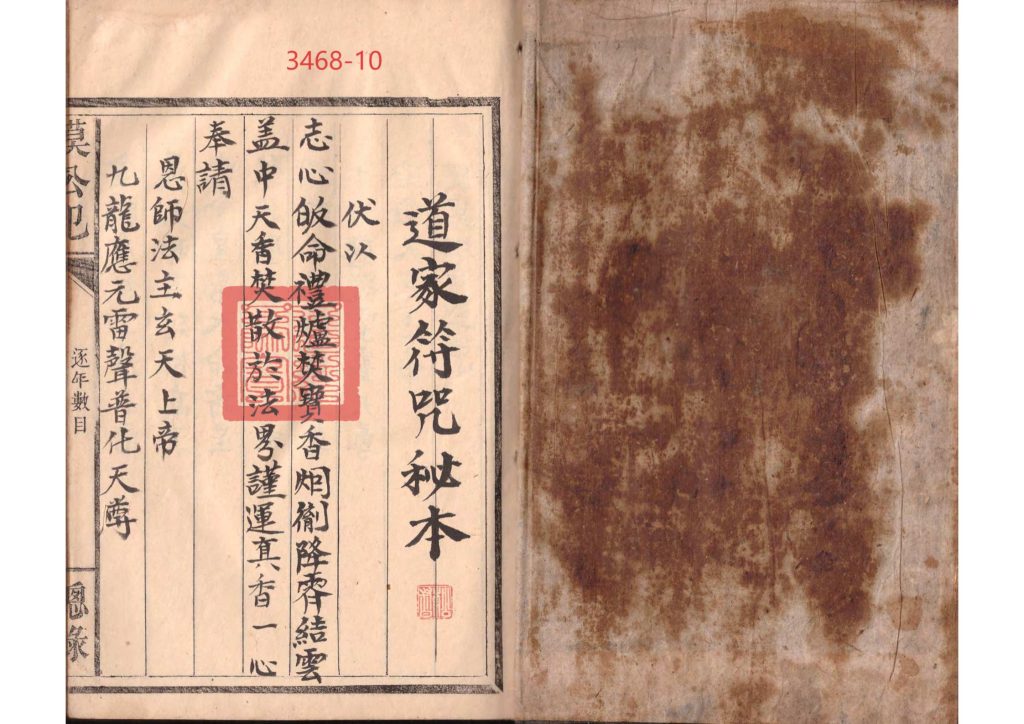 3468-10
道家符咒秘本
伏以
志心皈命禮爐焚寶香降結雲
盖中天香焚散於法界謹運真香一心
奉請
恩師法主玄天上帝
九龍應元雷聲普化天尊
逐年數目